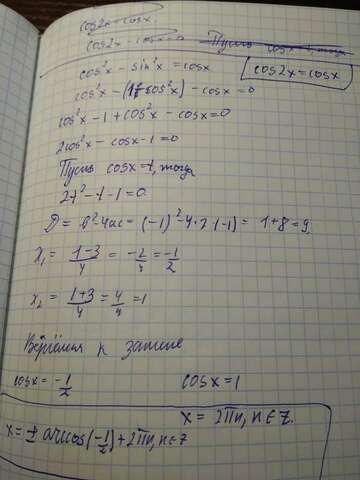 cos2x = cosx
cos2x - cosx = 0 Пусть cosx = t, тогда
cos²x - sin²x = cosx
cos2x = cosx
cos²x - (1-cos²x) - cosx = 0
cos²x - 1 + cos²x - cosx = 0
2cos²x - cosx - 1 = 0
Пусть cosx = t, тогда
2t² - t - 1 = 0
D = b² - 4ac = (-1)² - 4·2·(-1) = 1+8 = 9
x₁ = (1-3)/4 = -2/4 = -1/2
x₂ = (1+3)/4 = 4/4 = 1
Вернёмся к замене
cosx = -1/2 cosx = 1
x = 2πn, n∈Z.
x = ± arccos(-1/2) + 2πn, n∈Z